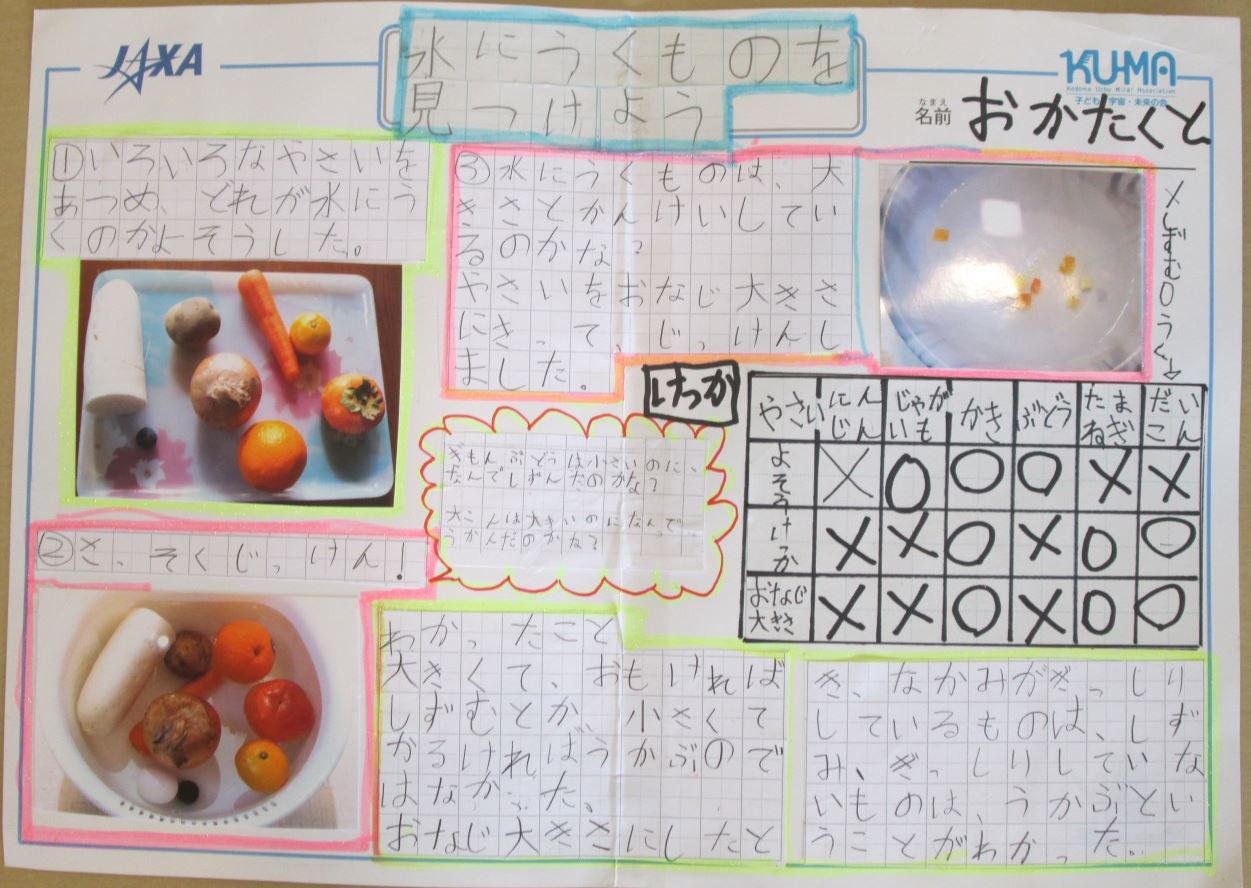 JAXA
水にうくものを
見つけよう
KU-MA
Kodomo Uchu Mirai Association
子ども・宇宙・未来の会
なまえ
名前 おかたくと
①いろいろなやさいを
あつめ、どれが水にう
くのかよそうした。
②さっそくじっけん!
③水にうくものは、大
きさとかんけいしてい
るのかな?
やさいをおなじ大きさ
にきって、じっけんし
ました。
×しずむ○うく→
けっか
やさい にんじん じゃがいも かき ぶどう たまねぎ だいこん
よそう × ○ ○ ○ × ×
けっか × × ○ × ○ ○
おなじ大きさ × × ○ × ○ ○
ぎもんぶどうは小さいのに、
なんでしずんだのかな?
大こんは大きいのになんで
うかんだのかな?
わかったこと
大きくて、おもければ
しずむとか、小さくて
かるければうかぶので
はなかった。
おなじ大きさにしたと
き、なかみがぎっしり
しているものは、しず
み、ぎっしりしていな
いものは、うかぶとい
うことがわかった。